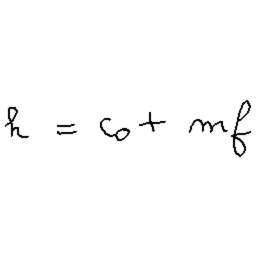 h = c₀ + mf